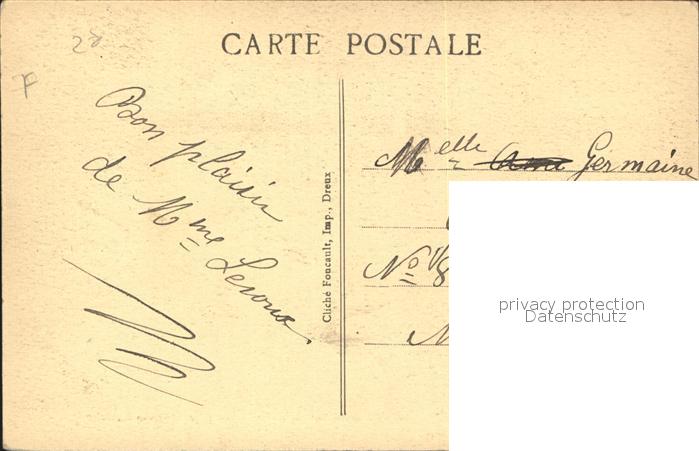 28
F
CARTE POSTALE
Bon plaisir
de Mme Leroux
Cliché Foucault, Imp., Dreux
Melle Germaine
No 18
privacy protection
Datenschutz